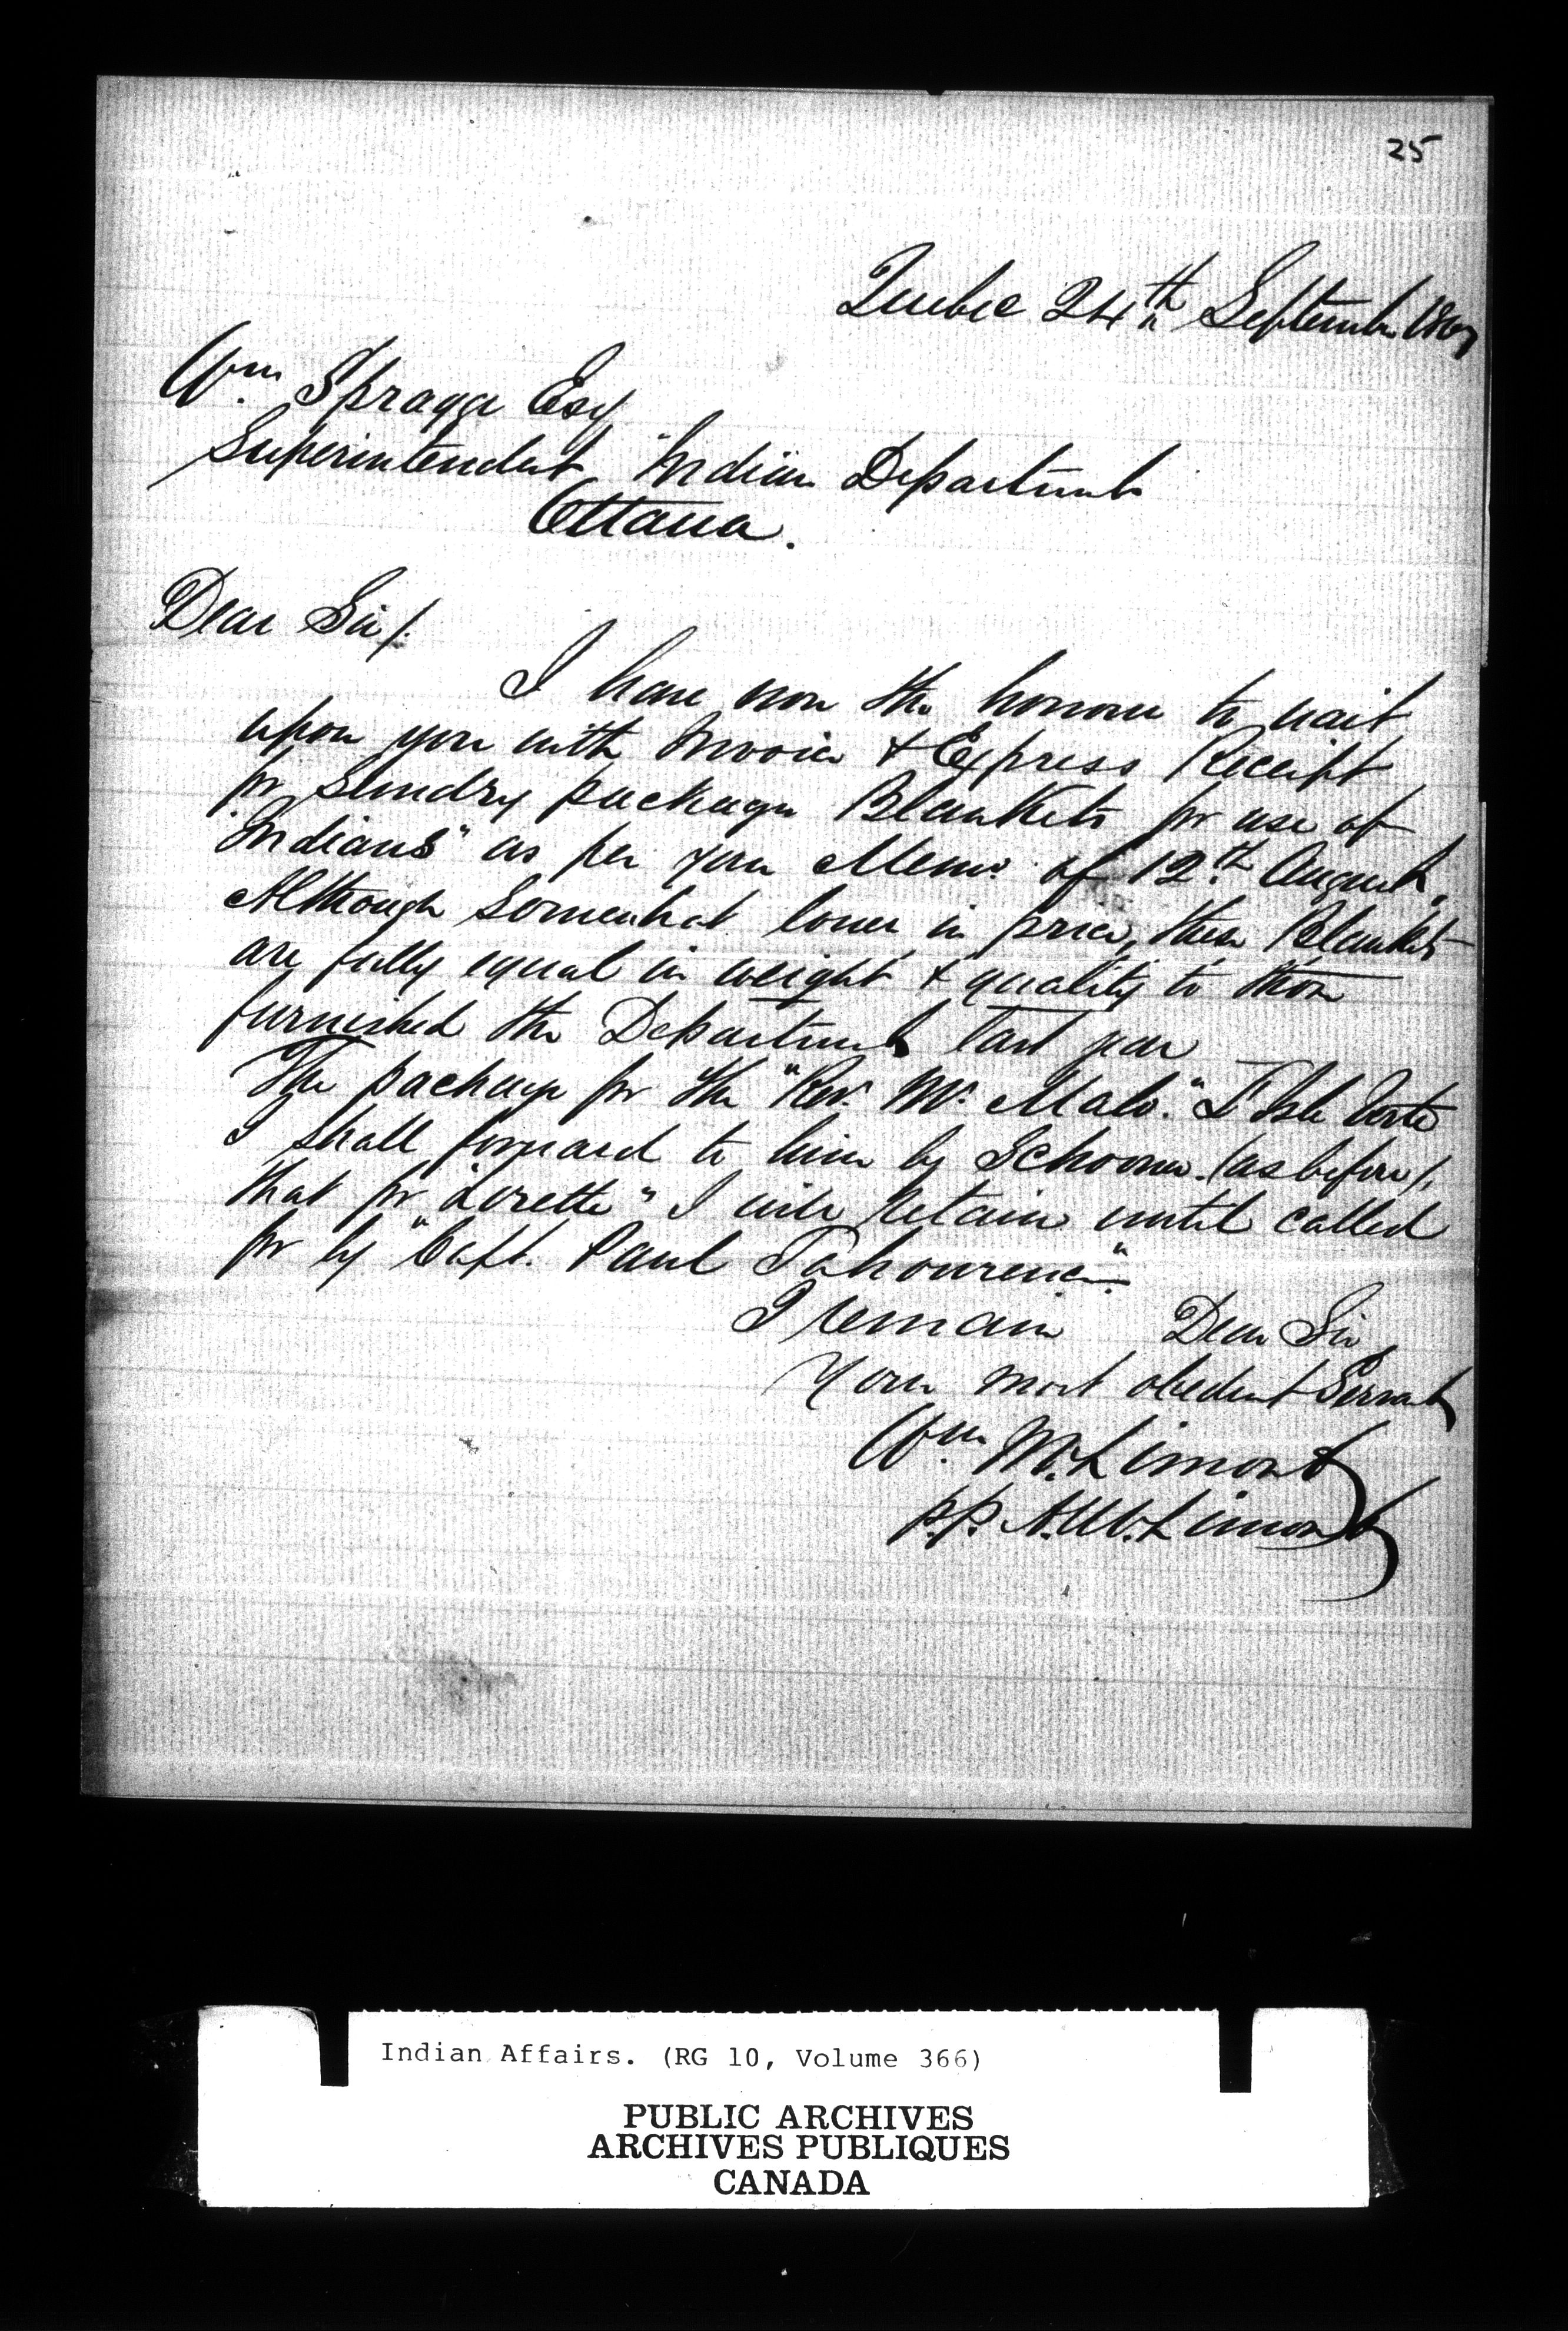 25
Quebec 24th September 1867
Wm. Spragge Esq
Superintendent "Indian Department
Ottawa.
Dear Sir/.
I have now the honour to wait
upon you with Invoice & Express Receipt
for Sundry packages Blankets for use of
"Indians" as per your Memo. of 12th August.
Although Somewhat lower in price, these Blankets
are fully equal in weight & quality to those
furnished the Department last year
The package for the "Rev. Mr. Malo." L'Isle Verte
I shall forward to him by Schooner. (as before/.
that for "Lorette" I will retain until called
for by "Capt. Paul
I remain Dear Sir,
Your most obedient Servant
Wm. McLimont
p.p. A. McLimont
Indian Affairs. (RG 10, Volume 366)
PUBLIC ARCHIVES
ARCHIVES PUBLIQUES
CANADA